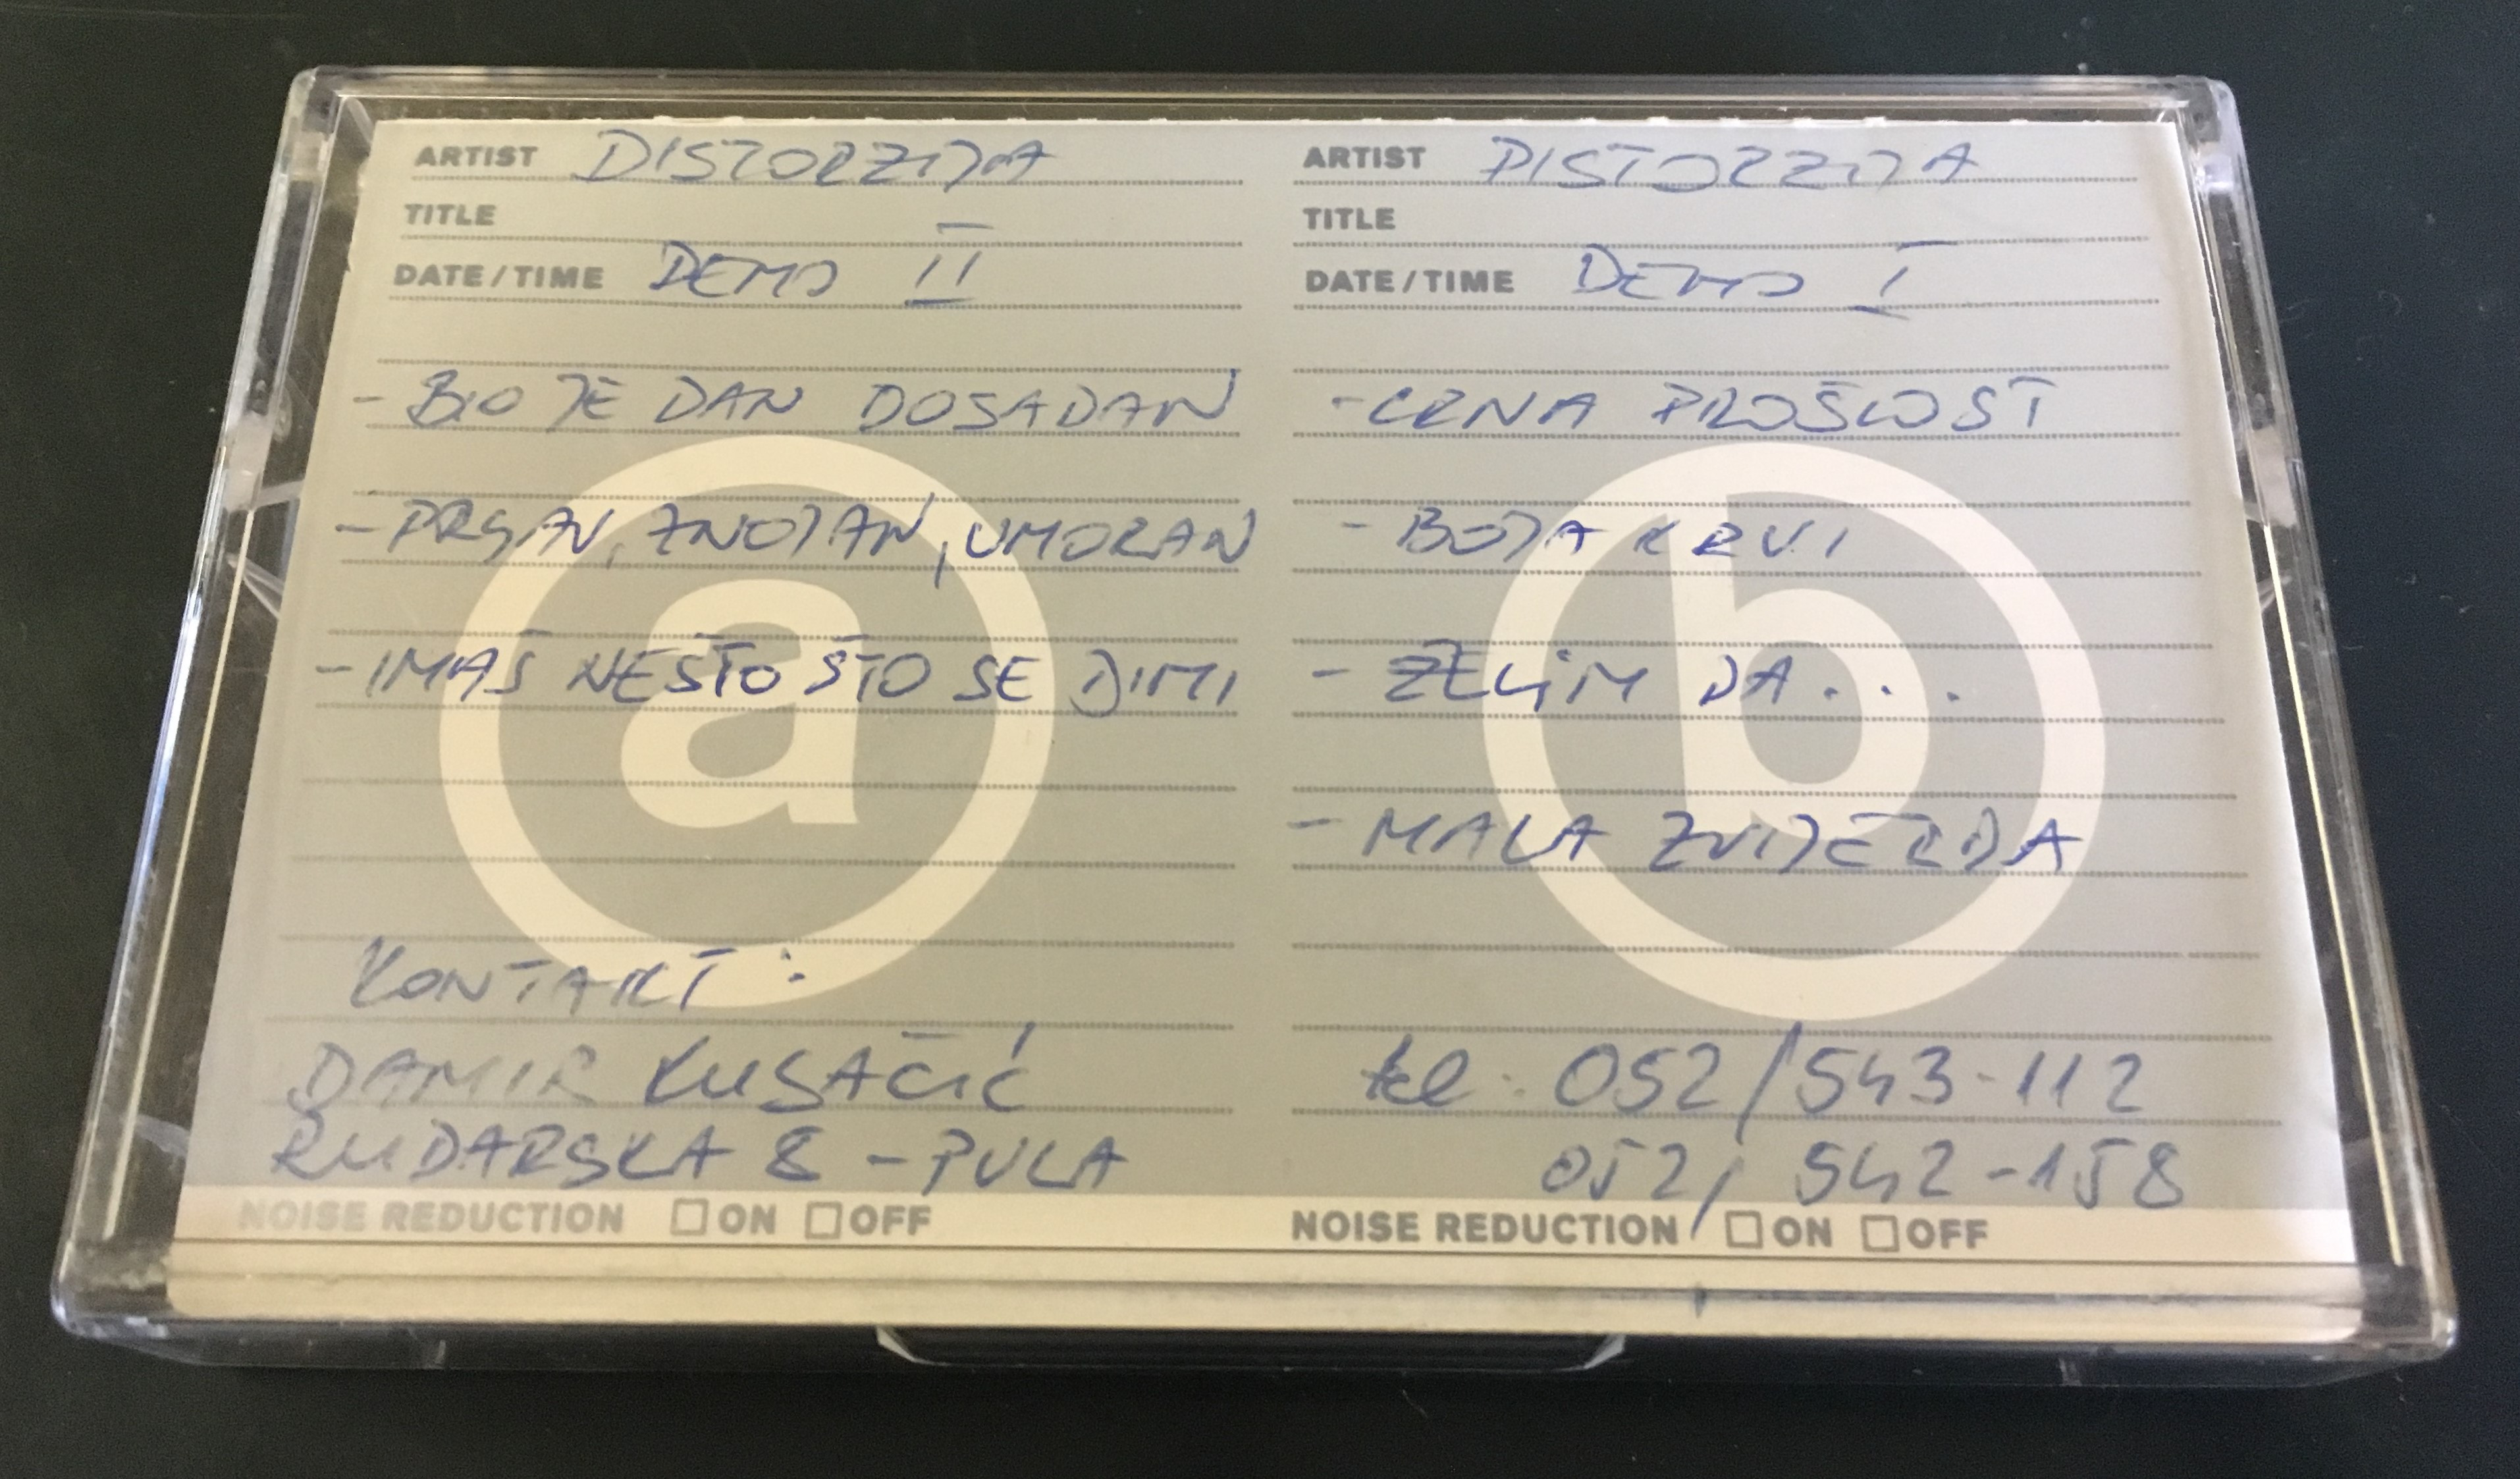 ARTIST DISTORZIJA
TITLE
DATE/TIME DEMO II
- BIO JE DAN DOSADAN
- PRSAN, ZNOJAN, UMORAN
- IMAŠ NEŠTO ŠTO SE DIMI
a
KONTAKT:
DAMIR KUSAČIĆ
RUDARSKA 8 - PULA
NOISE REDUCTION ON OFF
ARTIST DISTORZIJA
TITLE
DATE/TIME DEMO I
- CRNA PROŠLOST
- BOJA KRVI
- ŽELIM DA...
- MALA ZVIJERDA
b
tel: 052/543-112
052/542-158
NOISE REDUCTION ON OFF